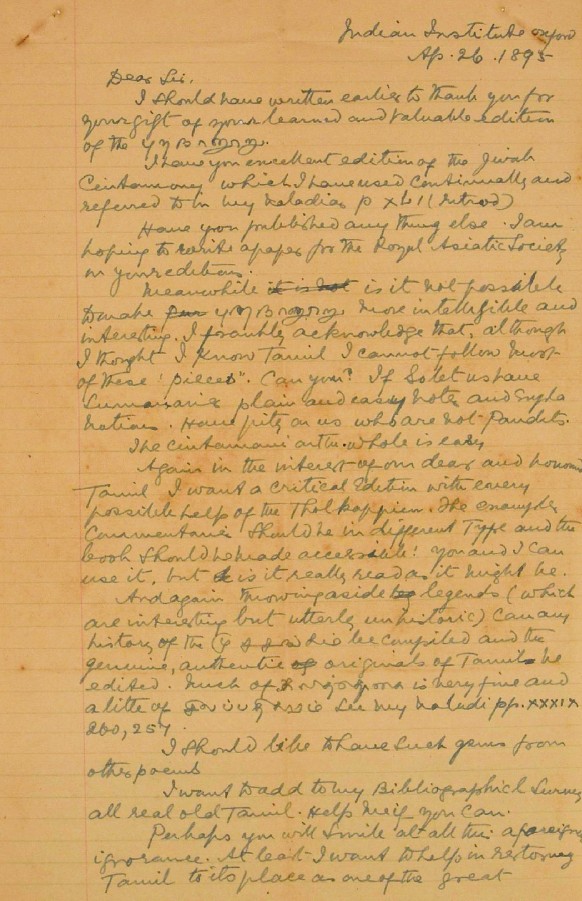 Indian Institute Oxford
Ap. 26. 1895
Dear Sir,
I should have written earlier to thank you for
your gift of your learned and valuable edition
of the
I have you excellent edition of the Jivak
Cintamony which I have used continually and
referred to in my Naladiar p xlii (Introd)
Have you published any thing else. I am
hoping to write a paper for the Royal Asiatic Society,
on your editions.
Meanwhile it is not is it not possible
to make more intelligible and
interesting. I frankly acknowledge that, although
I thought I know Tamil I cannot follow most
of these 'pieces". Can you? If so let us have
Summaries plain and easy notes and expla
nations. Have pity on us who are not Pandits.
The Cintamani on the whole is easy
Again in the interest of our dear and honoured
Tamil I want a critical Edition with every
possible help of the Tholkappiam. The
Commentaries should be in different Type and the
book should be made accessible: you and I can
use it, but is it really read as it might be.
And again throwing aside legends (which
are interesting but utterly unhistoric) Can any
history of the be compiled and the
genuine, authentic originals of Tamil be
edited. Much of is very fine and
a litte of See my Naladi pp. xxxix
200, 257.
I should like to have such gems from
other poems
I want to add to my Bibliographicl Survey
all real old Tamil. Help me if you can.
Perhaps you will smile at all this a foreigners
ignorance. At least I want to help in restoring
Tamil to its place as one of the great